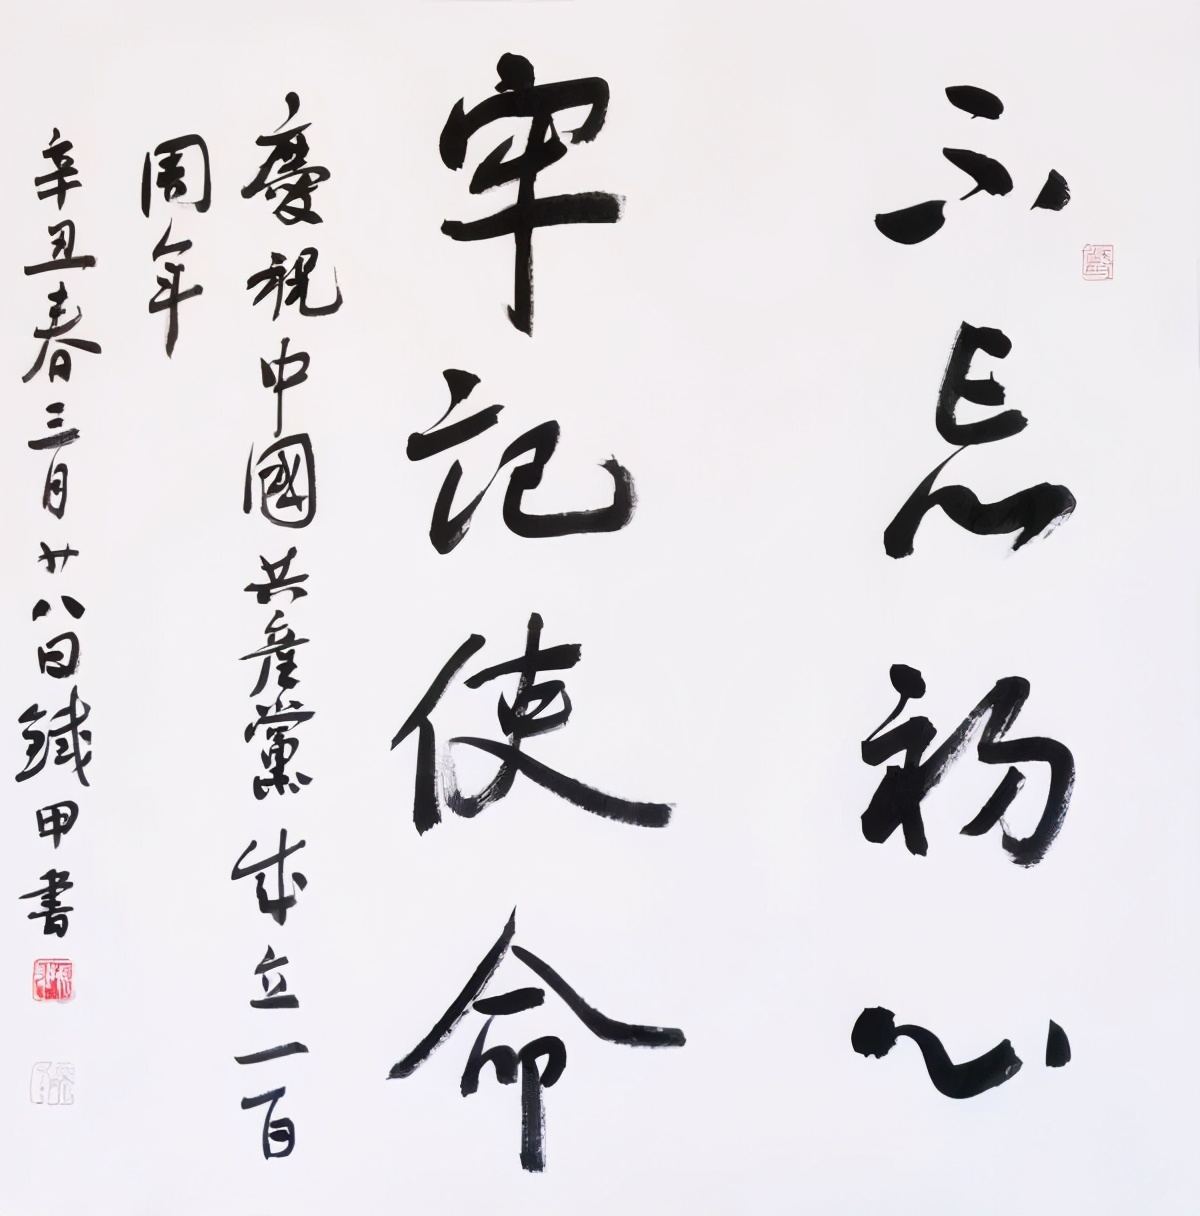 不忘初心
牢記使命
慶祝中國共產黨成立一百
周年
辛丑春三月廿八日鐵甲書